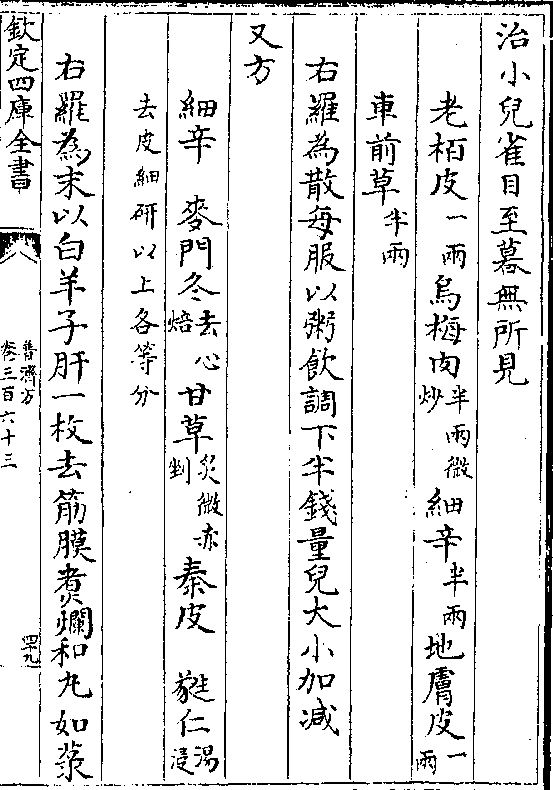 治小兒雀目至暮無所見
老栢皮一兩烏梅肉半兩微炒細辛半兩地膚皮一兩
車前草半兩
右羅為散每服以粥飲調下半錢量兒大小加減
又方
細辛 麥門冬去心焙甘草炙微赤剉秦皮 蕤仁湯浸
去皮細研以上各等分
右羅為末以白羊子肝一枚去筋膜煑爛和丸如菉
欽定四庫全書
普濟方
卷三百六十三
四十九